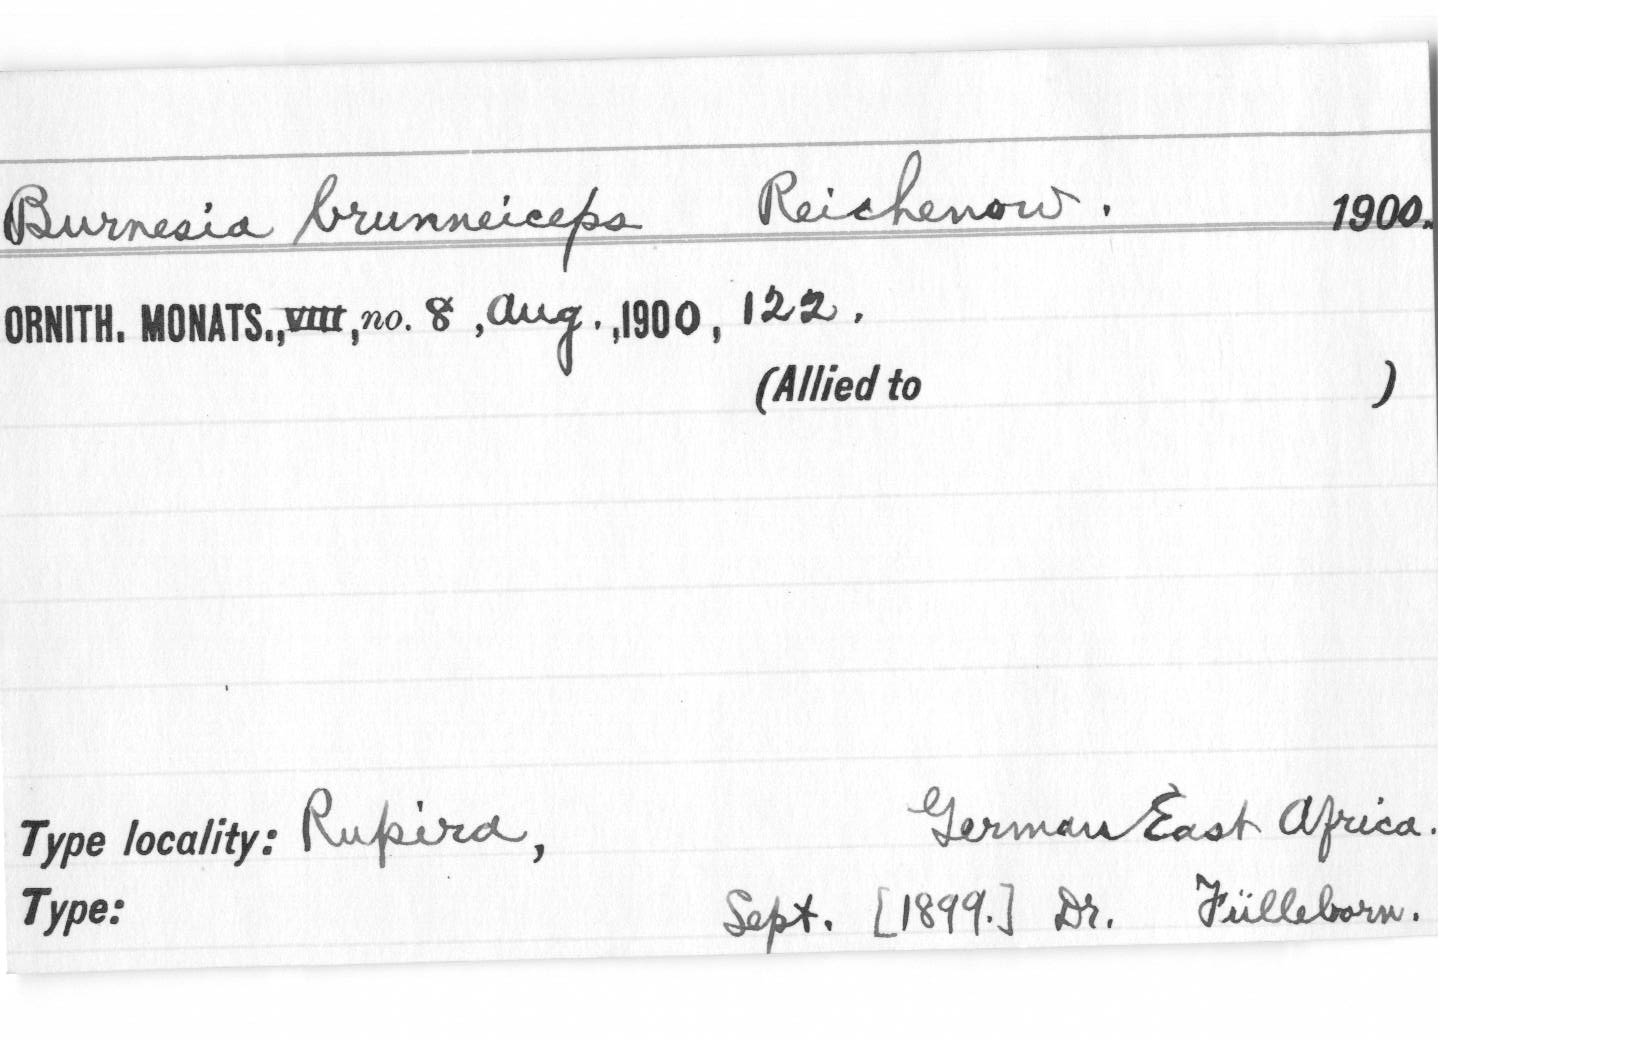 Burnesia brunneiceps Reichenow. 1900.
ORNITH. MONATS., VIII, no. 8, Aug., 1900, 122.
(Allied to )
Type locality: Rupira, German East Africa.
Type: Sept. [1899.] Dr. Fülleborn.